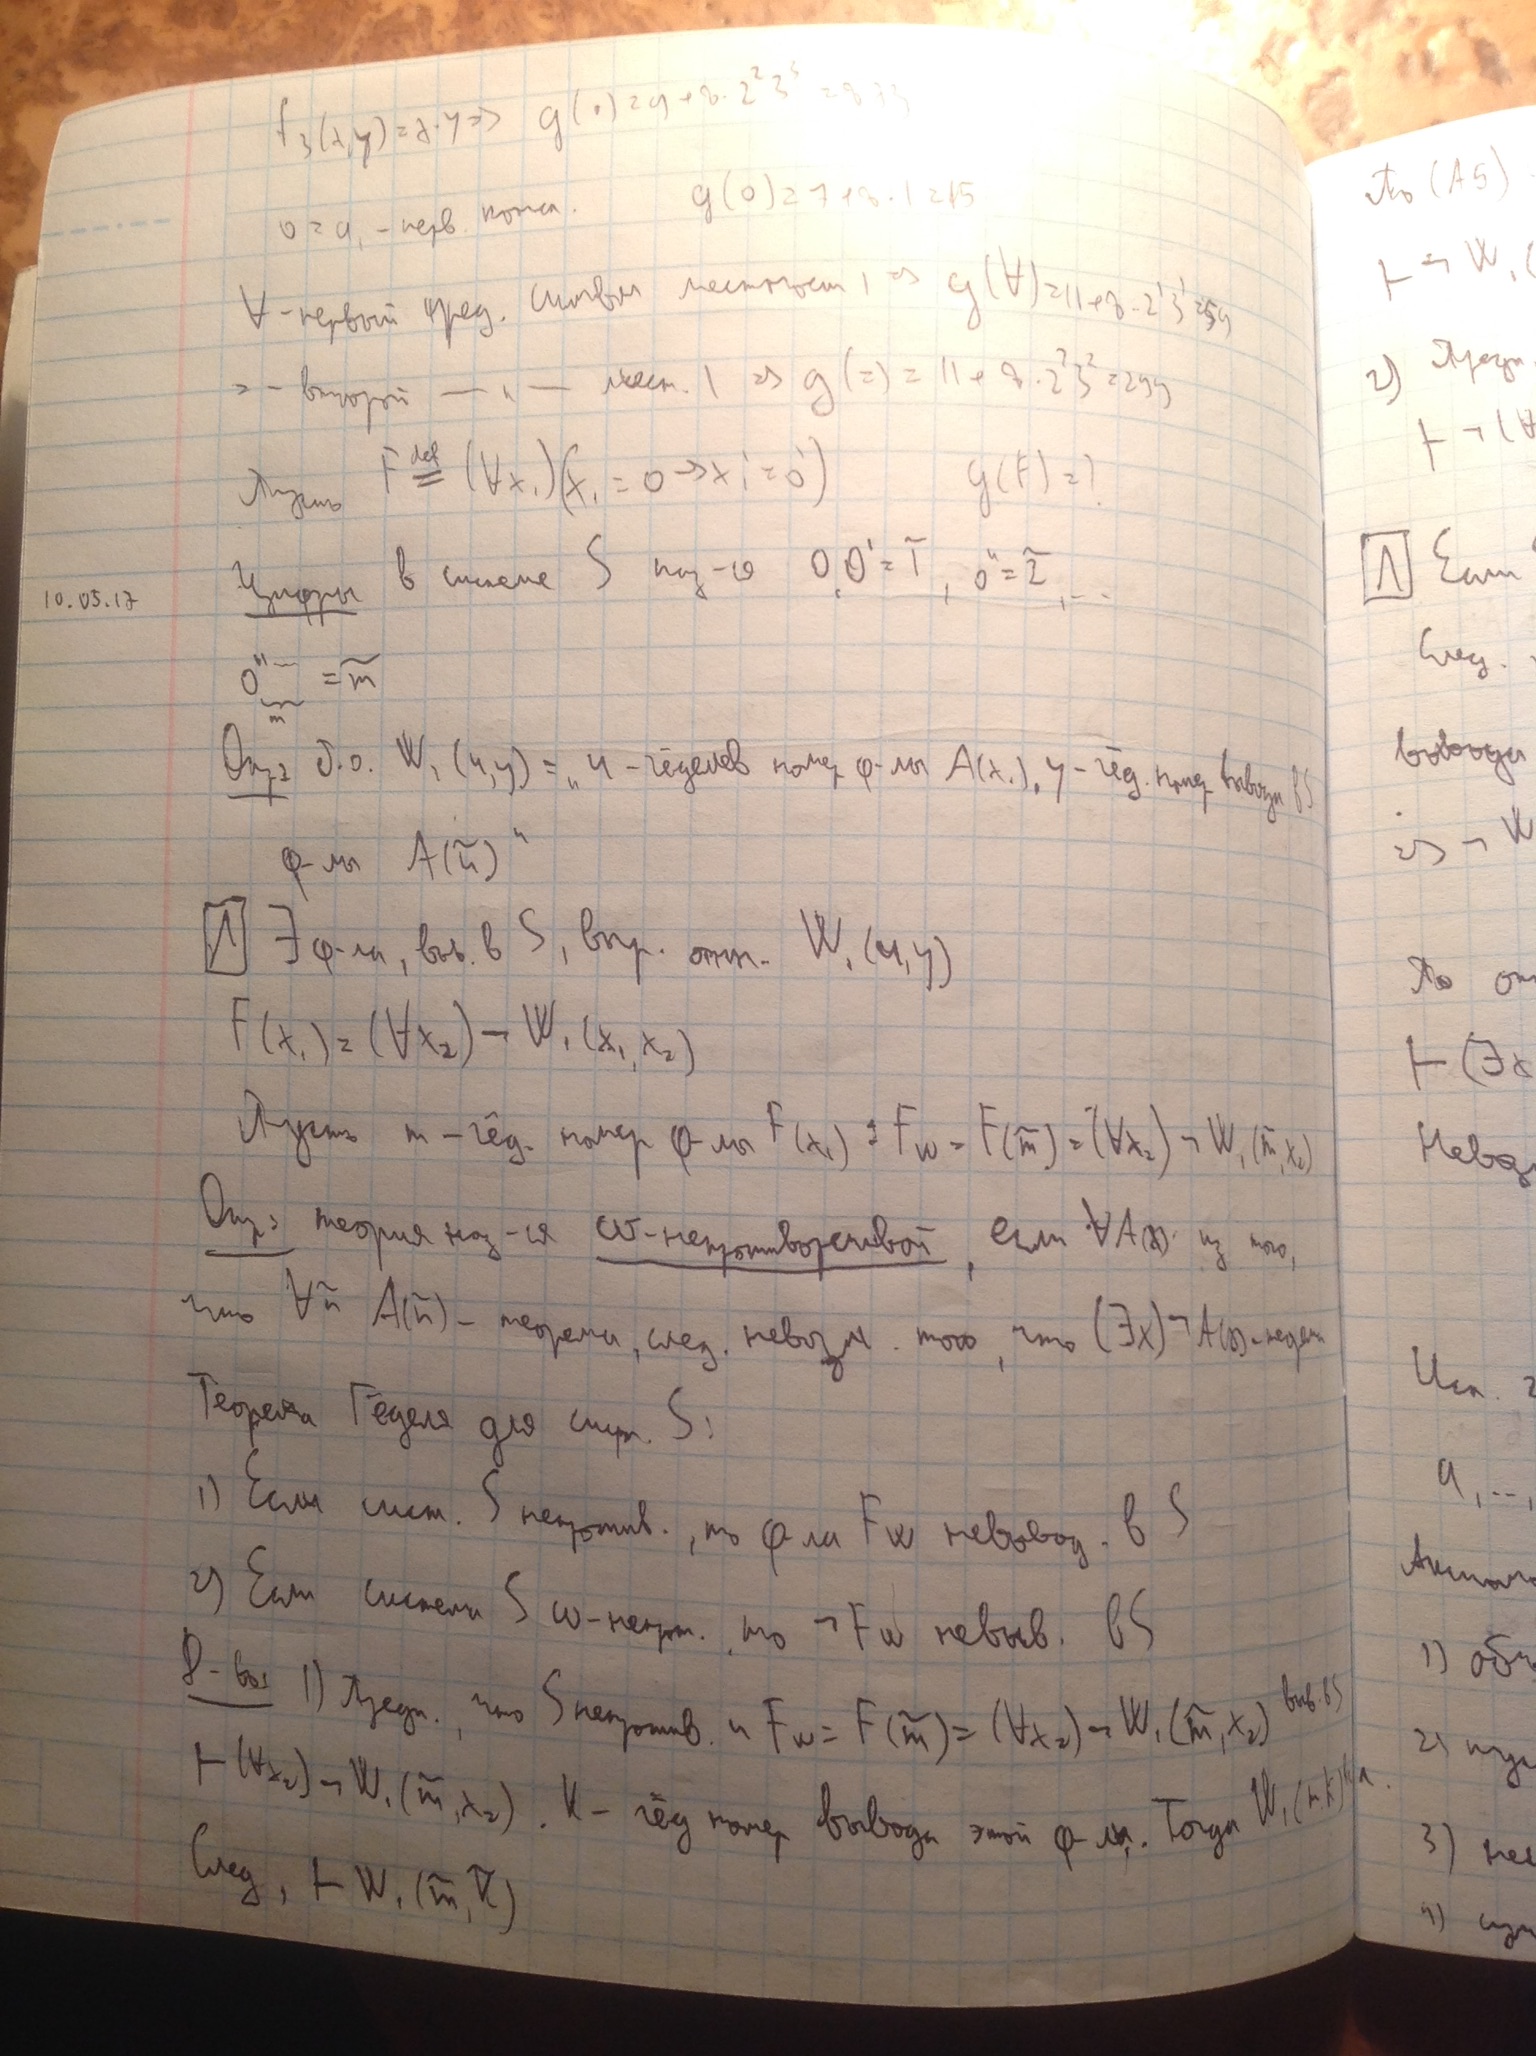 f₃(x,y)=x·y => g(·)=9+8·2²3⁵=
0=a₁ - перв. конст. g(0)=7+8·1=15
∀-первый пред. символ местност 1 => g(∀)=11+8·2¹3¹=59
= - второй —"— мест. 1 => g(=)=11+8·2²3²=299
Пусть F ≝ (∀x₁)(x₁=0→x₁'=0') g(F)=?
10.05.17
Цифры в системе S наз-ся 0, 0'=1̃, 0''=2̃, ...
0''... = m̃
m
Опр: б.о. W₁(u,y)="u-гёделев номер ф-лы A(x₁), y-гёд. номер вывода в S
ф-лы A(ũ)"
Л ∃ ф-ла, выв. в S, выр. отн. W₁(u,y)
F(x₁)=(∀x₂)¬W₁(x₁,x₂)
Пусть m-гёд. номер ф-лы F(x₁): F_W=F(m̃)=(∀x₂)¬W₁(m̃,x₂)
Опр: теория наз-ся ω-непротиворечивой, если ∀A(x) из того,
что ∀ñ A(ñ)- теорема, след. невозм. того, что (∃x)¬A(x)-теорема
Теорема Гёделя для сист. S:
1) Если сист. S непротив., то ф-ла F_W невывод. в S
2) Если система S ω-непрот. то ¬F_W невыв. в S
Д-во: 1) Предп., что S непротив. и F_W=F(m̃)=(∀x₂)¬W₁(m̃,x₂) выв. в S
⊢(∀x₂)¬W₁(m̃,x₂). K- гёд номер вывода этой ф-лы. Тогда W₁(m,k)
След, ⊢W₁(m̃,k̃)
По (A5)
⊢¬W₁(
2) Предп.
⊢¬(∀
Л Если
След.
вывода
=>¬W
По оп
⊢(∃x
Исп. 2
a,...,
1) об
2)
3)
4)